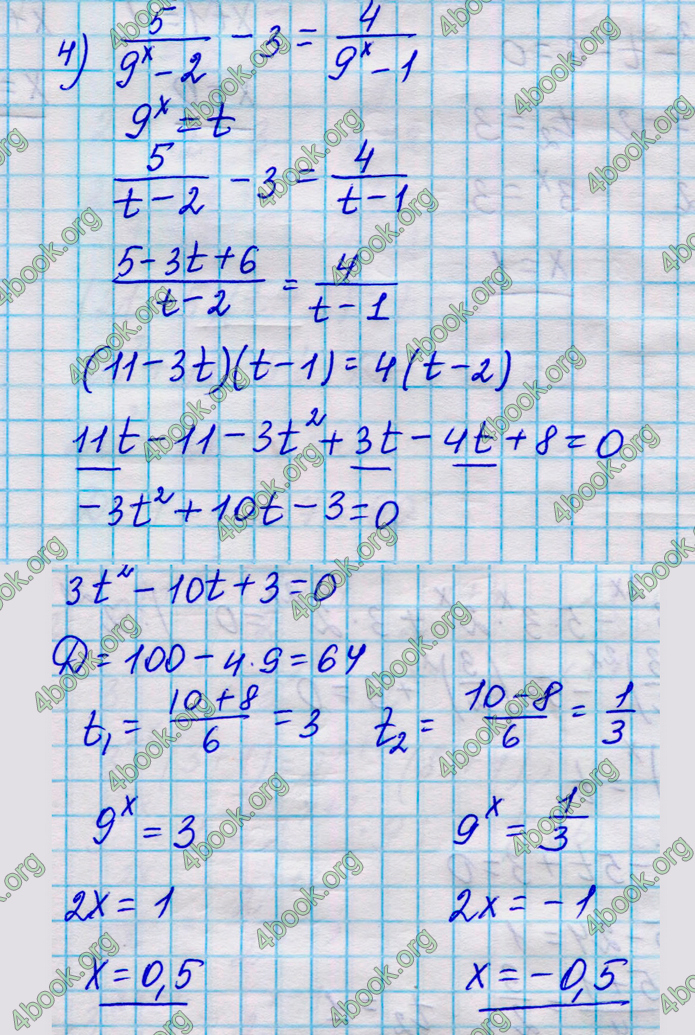 4) 5/(9^x − 2) − 3 = 4/(9^x − 1)
9^x = t
5/(t − 2) − 3 = 4/(t − 1)
(5 − 3t + 6)/(t − 2) = 4/(t − 1)
(11 − 3t)(t − 1) = 4(t − 2)
11t − 11 − 3t² + 3t − 4t + 8 = 0
−3t² + 10t − 3 = 0
3t² − 10t + 3 = 0
D = 100 − 4·9 = 64
t₁ = (10 + 8)/6 = 3 t₂ = (10 − 8)/6 = 1/3
9^x = 3 9^x = 1/3
2x = 1 2x = −1
x = 0,5 x = −0,5
4book.org